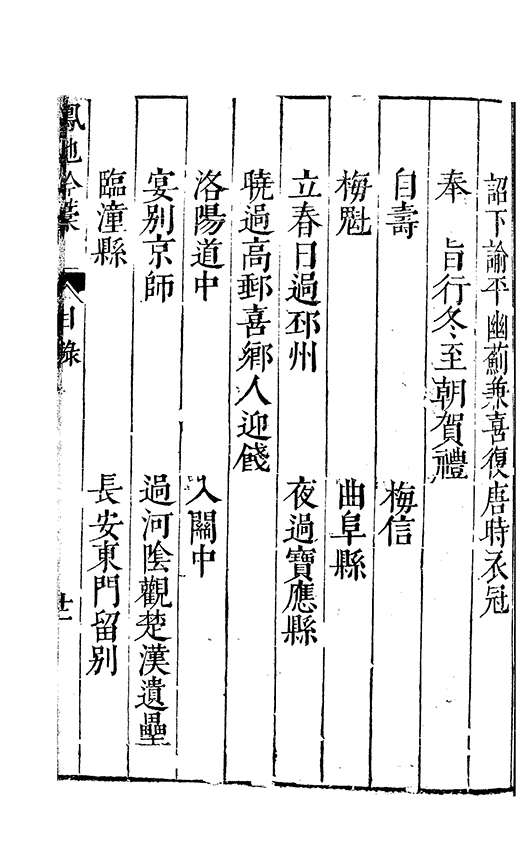 詔下諭平幽薊兼喜復唐時衣冠
奉　旨行冬至朝賀禮
自壽　梅信
梅魁　曲阜縣
立春日過邳州　夜過寶應縣
曉過高郵喜鄉人迎餞
洛陽道中　入關中
宴別京師　過河陰觀楚漢遺壘
臨潼縣　長安東門留別
鳳池吟藁　目錄　十二